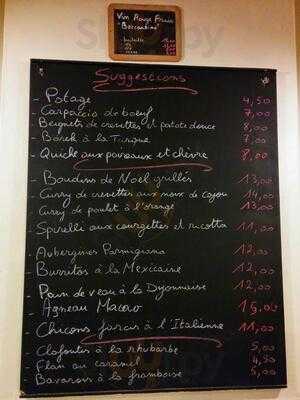 Vin Rouge Frais
"Bercantino"
Suggestions
- Potage 4,50
- Carpaccio de boeuf 7,00
- Beignets de crevettes et patate douce 8,00
- Borek à la Turque 7,00
- Quiche aux poireaux et chèvre 8,00
- Boudins de Noël grillés 13,00
- Curry de crevettes aux noix de cajou 14,00
- Curry de poulet à l'orange 13,00
- Spirelli aux courgettes et ricotta 11,00
- Aubergines Parmigiana 12,00
- Burritos à la Mexicaine 12,00
- Pain de veau à la Dyonnaise 12,00
- Agneau Macao 15,00
- Chicons farcis à l'Italienne 11,00
- Clafoutis à la rhubarbe 5,00
- Flan au caramel 4,50
- Bavarois à la framboise 5,00